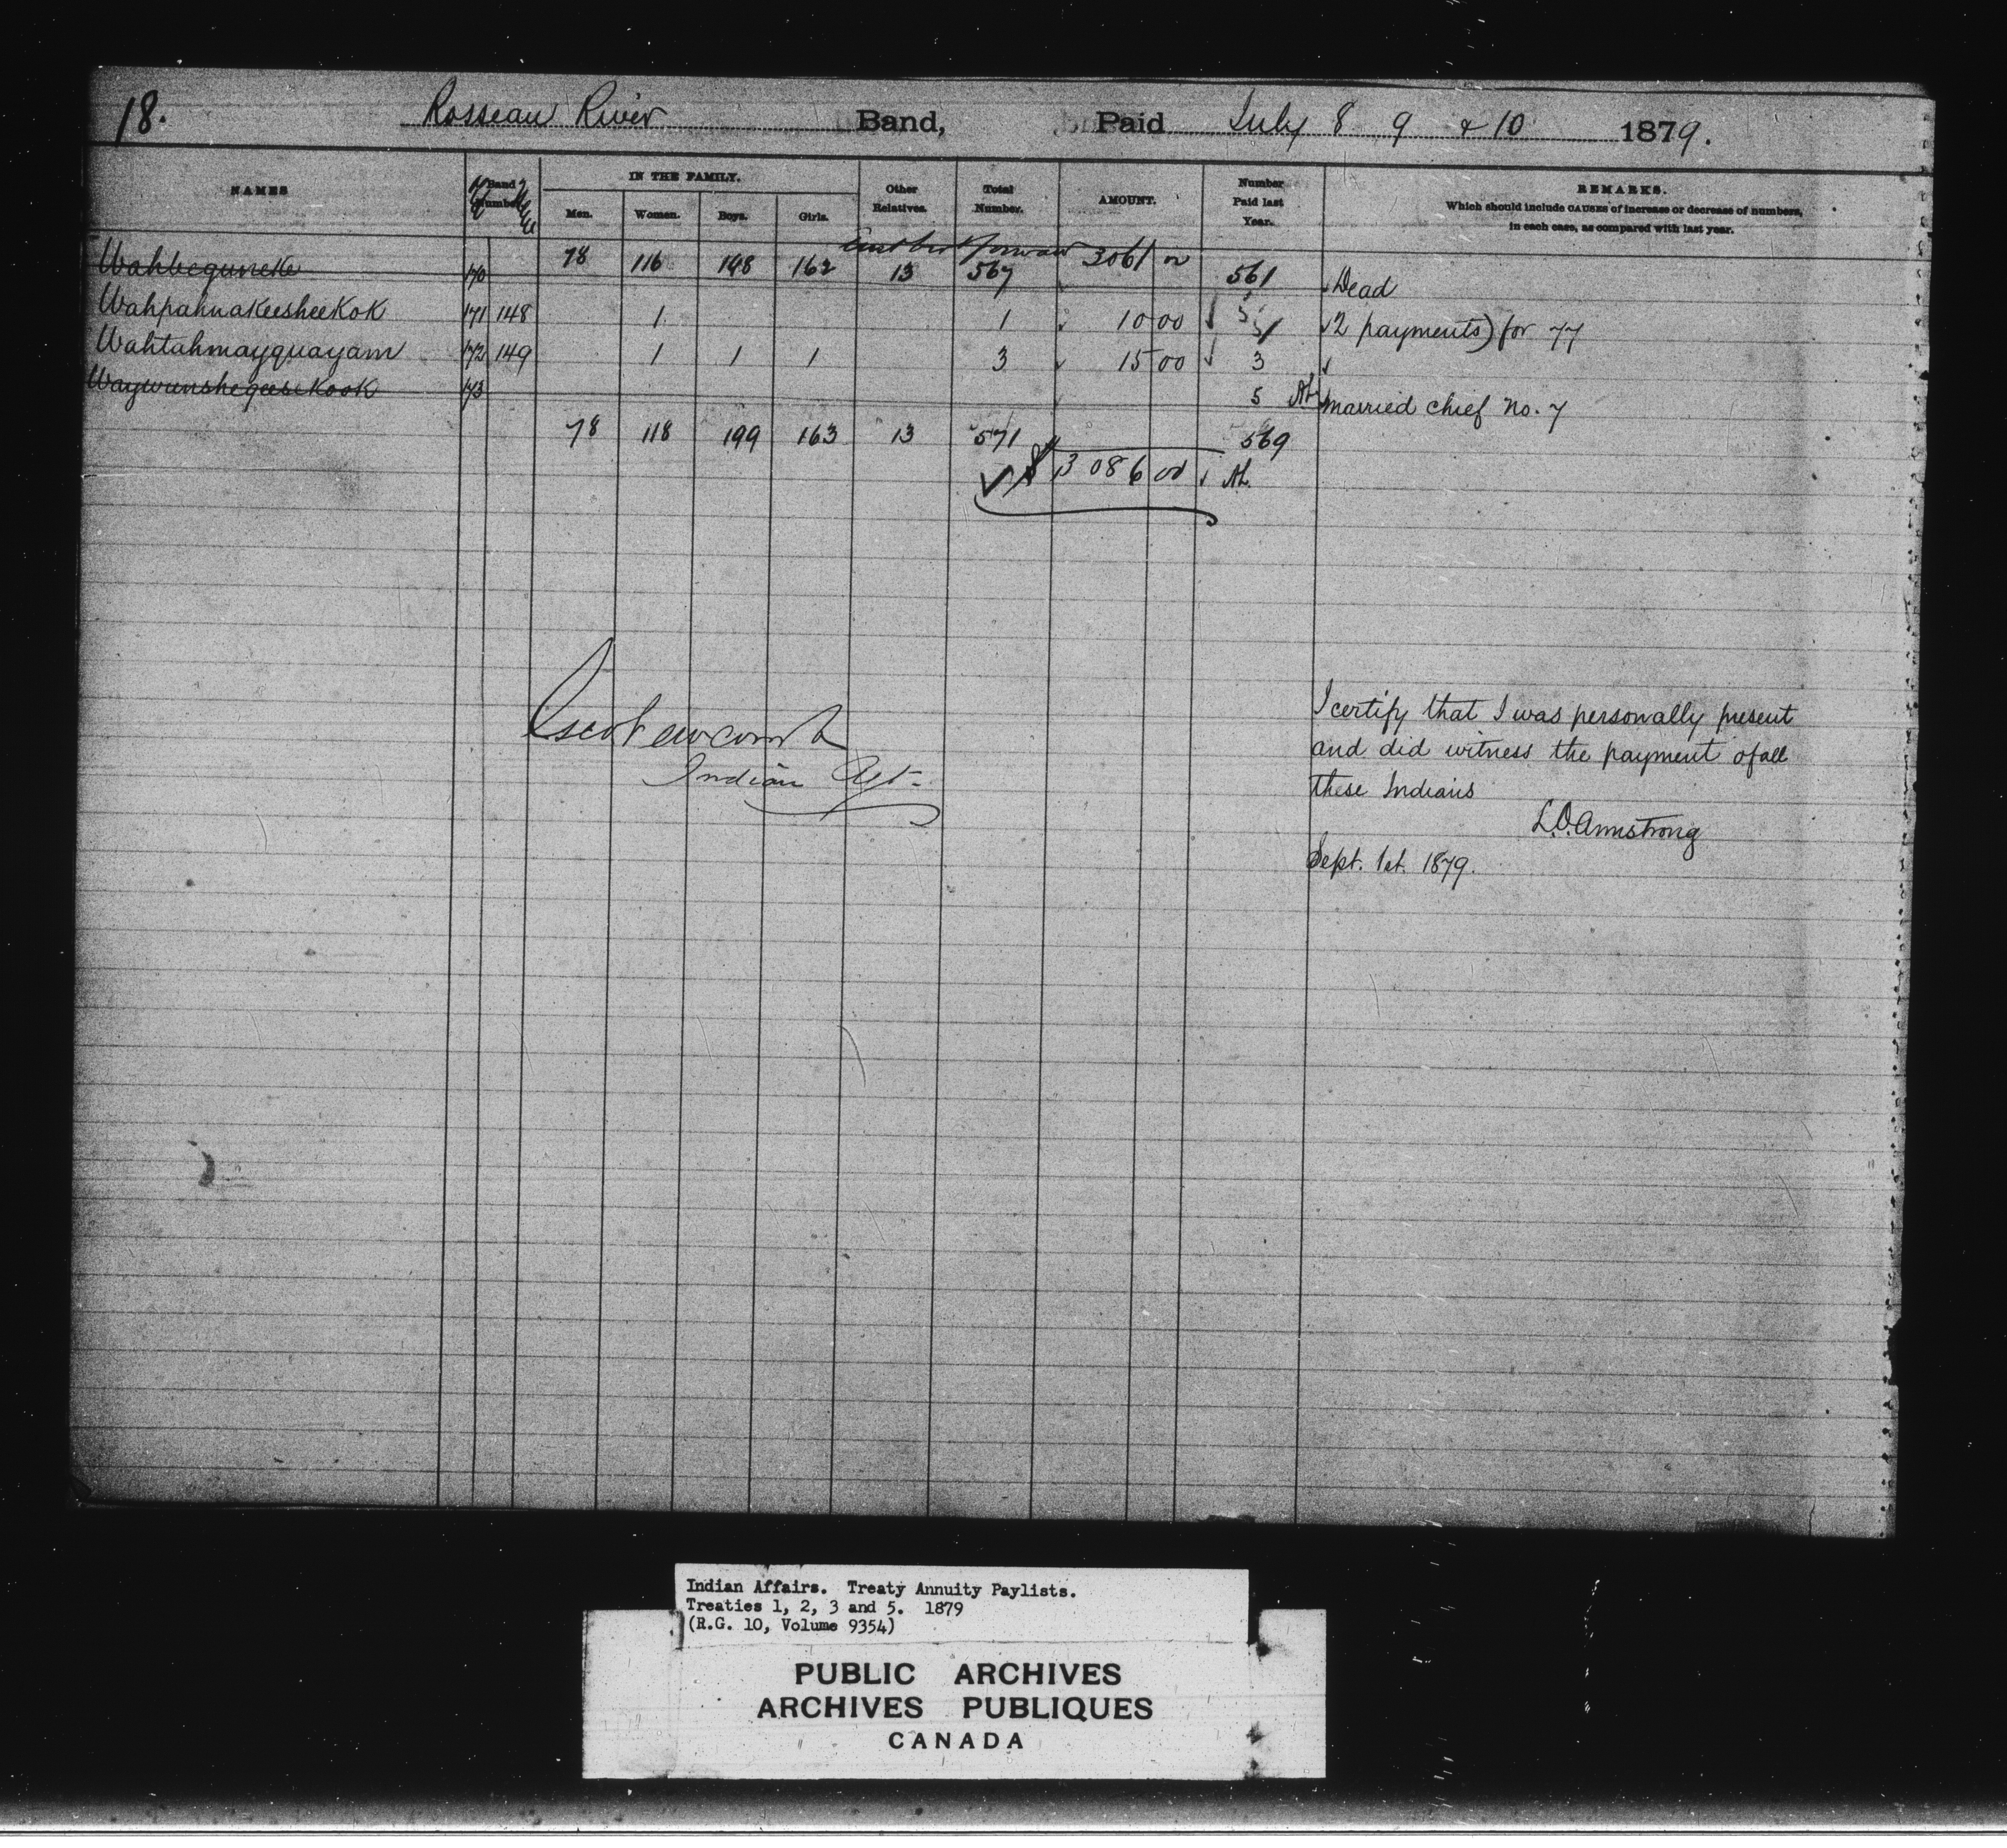 18. Rosseau River Band, Paid July 8 9 & 10 1879.
NAMES Band Number IN THE FAMILY. Men. Women. Boys. Girls. Other Relatives. Total Number. AMOUNT. Number Paid last Year. REMARKS.
Which should include CAUSES of increase or decrease of numbers,
in each case, as compared with last year.
forward
Wahbeguneke 170 78 116 198 162 13 567 3061 00 561 Dead
Wahpahnakeesheekok 171 148 1 1 10 00 1 2 payments) for 77
Wahtahmayquayam 172 149 1 1 1 3 15 00 3
Waywunshegeesekook 173 5 married chief No. 7
78 118 199 163 13 571 569
$ 3086 00
Indian Agt.
I certify that I was personally present
and did witness the payment of all
these Indians
L.O. Armstrong
Sept. 1st. 1879.
Indian Affairs. Treaty Annuity Paylists.
Treaties 1, 2, 3 and 5. 1879
(R.G. 10, Volume 9354)
PUBLIC ARCHIVES
ARCHIVES PUBLIQUES
CANADA